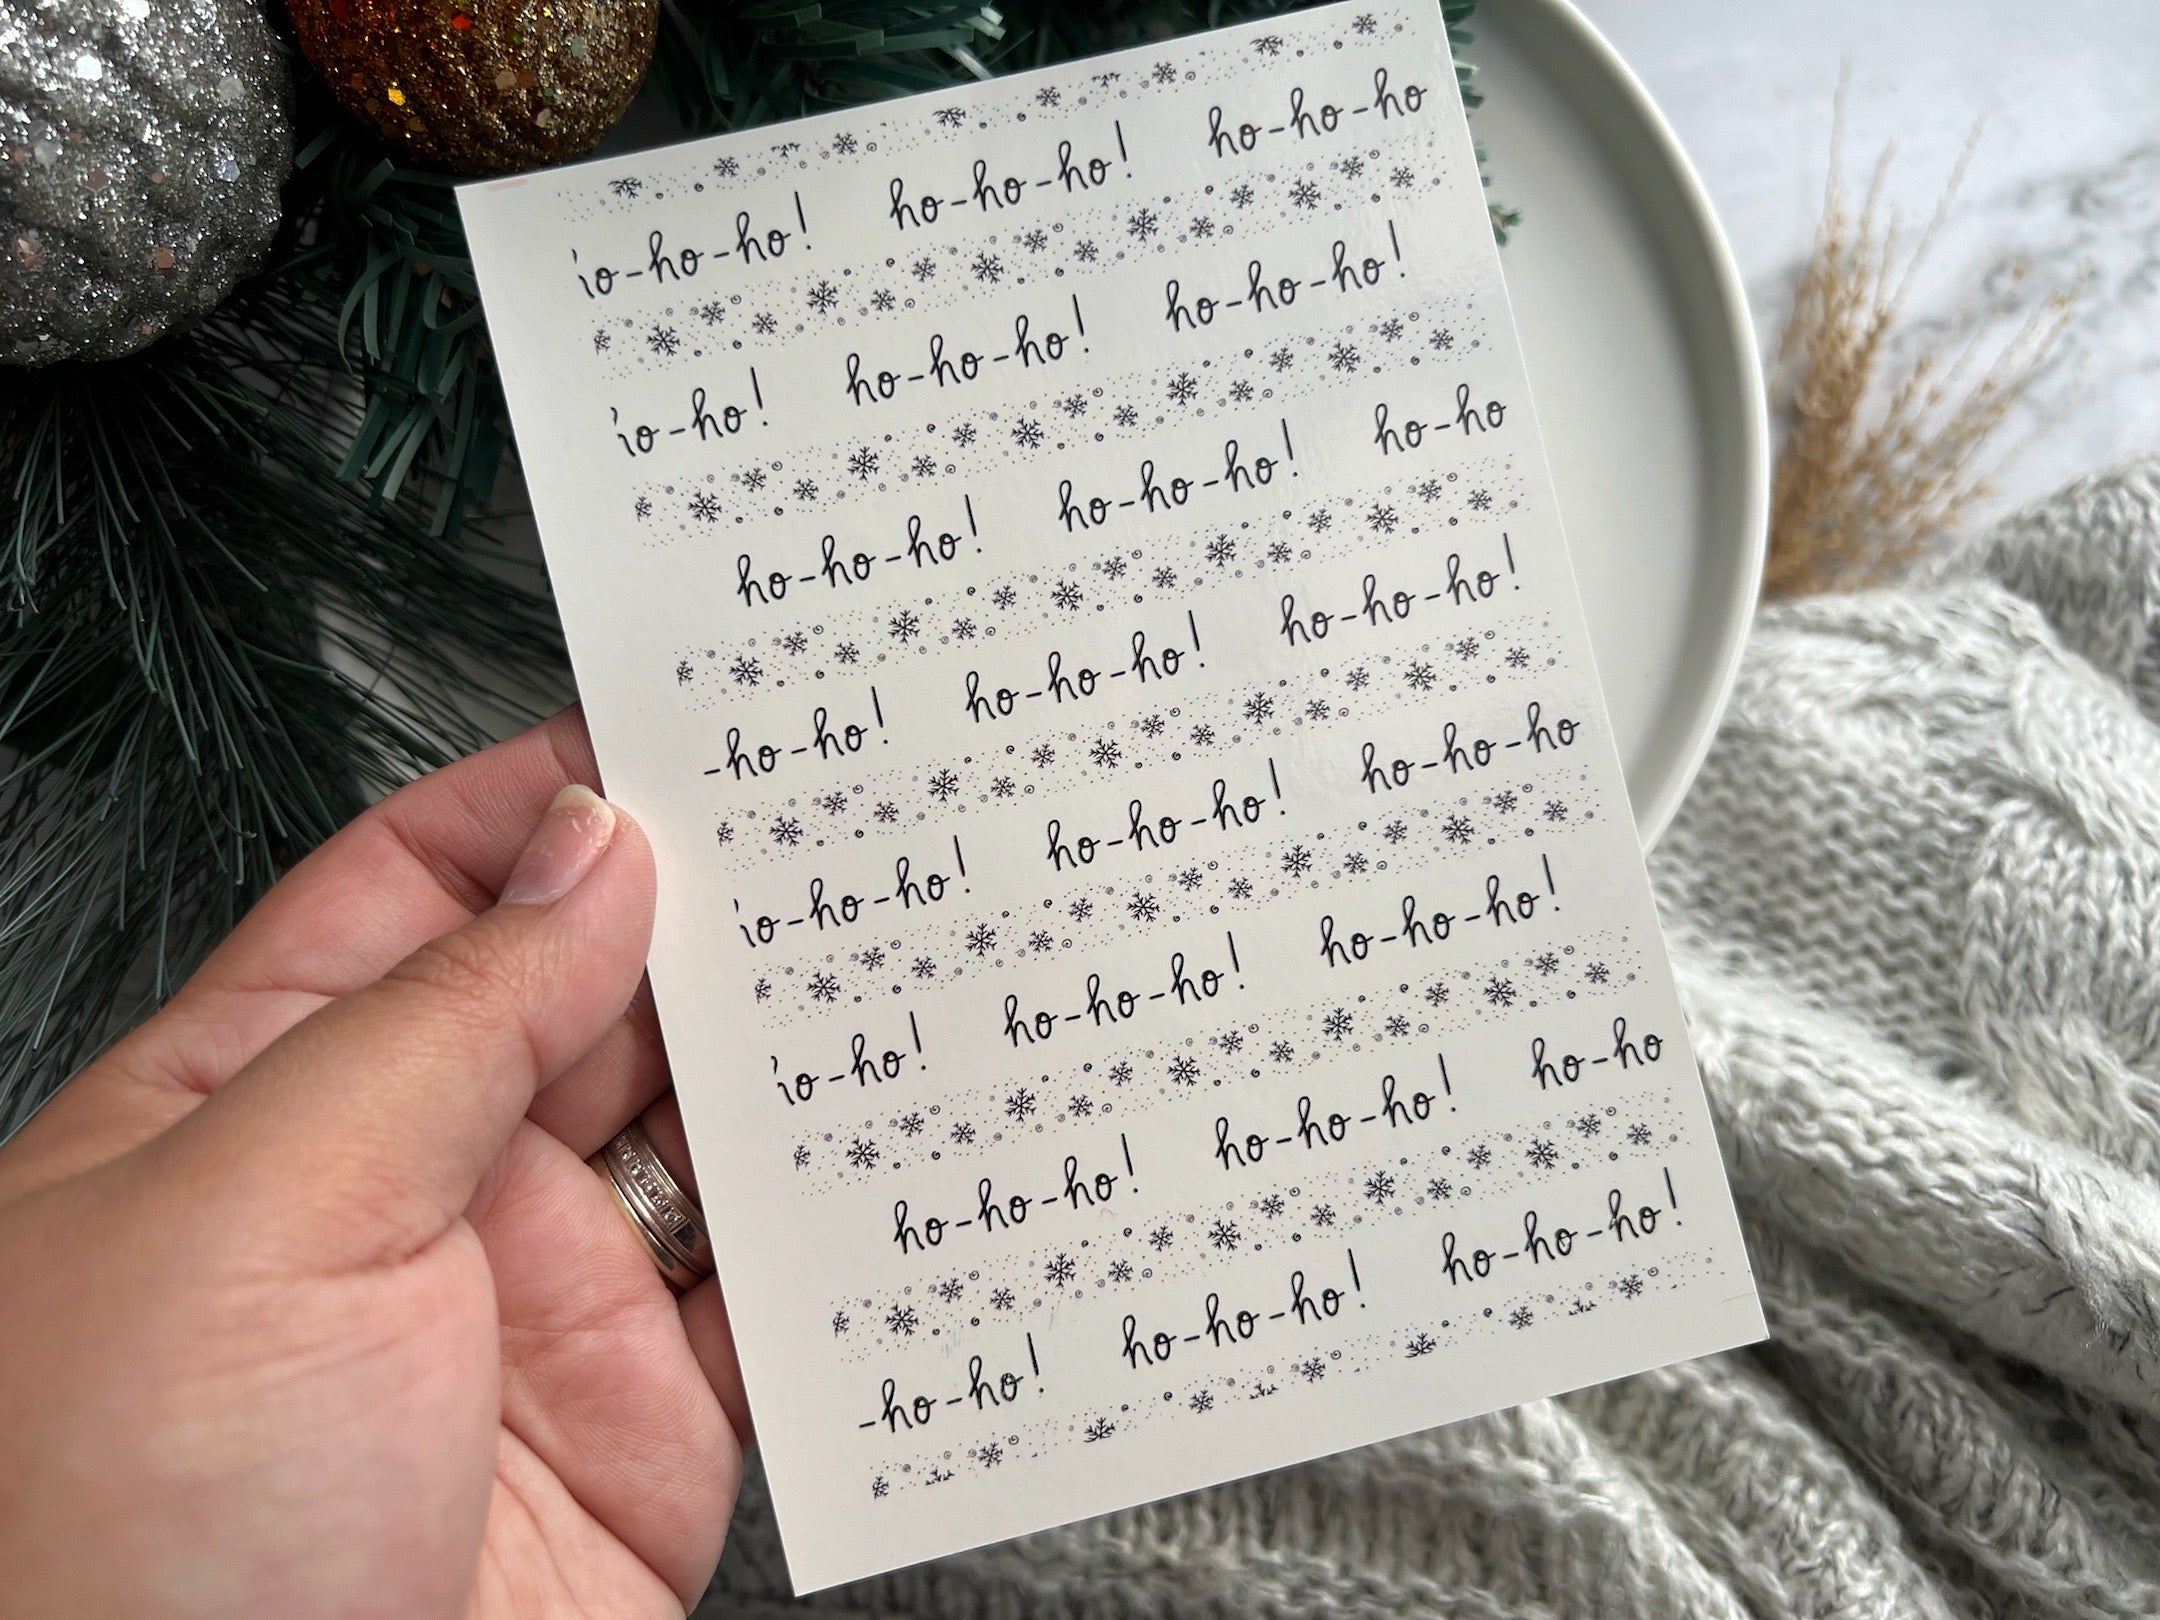 io-ho-ho! ho-ho-ho! ho-ho-ho
io-ho! ho-ho-ho! ho-ho-ho!
ho-ho-ho! ho-ho-ho! ho-ho
-ho-ho! ho-ho-ho! ho-ho-ho!
io-ho-ho! ho-ho-ho! ho-ho-ho
io-ho! ho-ho-ho! ho-ho-ho!
ho-ho-ho! ho-ho-ho! ho-ho
-ho-ho! ho-ho-ho! ho-ho-ho!